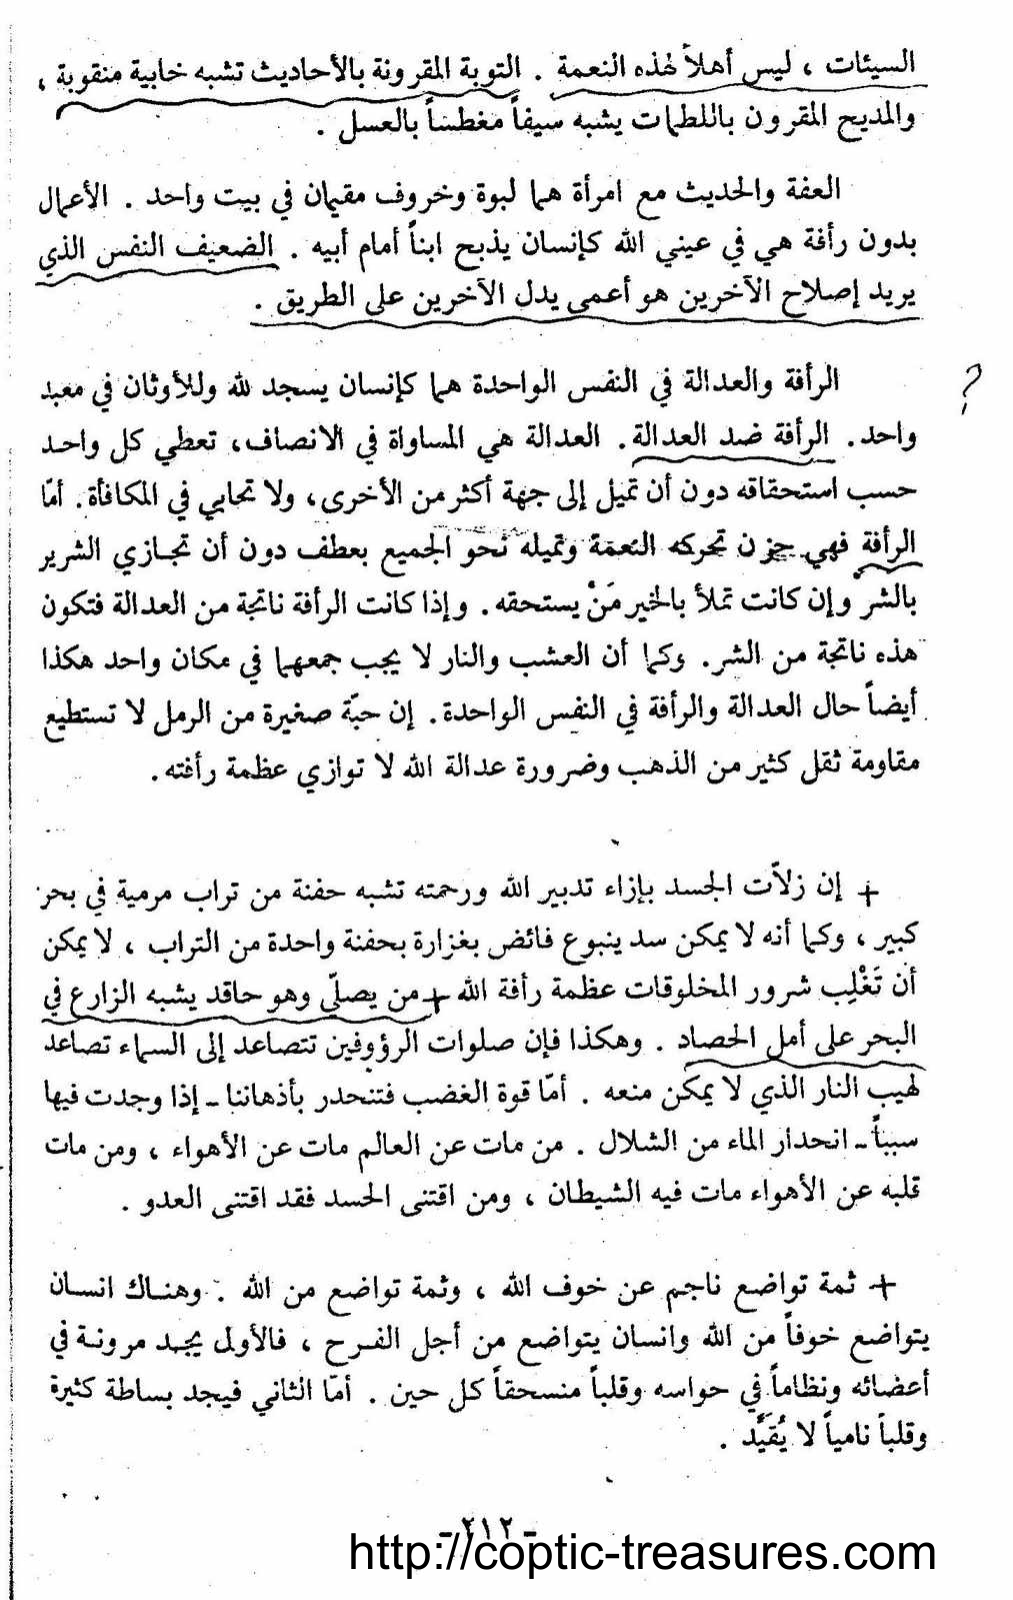 السيئات ، ليس أهلاً لهذه النعمة . التوبة المقرونة بالأحاديث تشبه خابية منقوبة ،
والمديح المقرون باللطمات يشبه سيفاً مغطساً بالعسل .
العفة والحديث مع امرأة هما لبوة وخروف مقيمان في بيت واحد . الأعمال
بدون رأفة هي في عيني الله كإنسان يذبح ابناً أمام أبيه . الضعيف النفس الذي
يريد إصلاح الآخرين هو أعمى يدل الآخرين على الطريق .
الرأفة والعدالة في النفس الواحدة هما كإنسان يسجد لله وللأوثان في معبد
؟
واحد. الرأفة ضد العدالة. العدالة هي المساواة في الانصاف، تعطي كل واحد
حسب استحقاقه دون أن تميل إلى جهة أكثر من الأخرى، ولا تحابي في المكافأة. أمّا
الرأفة فهي حزن تحركه النعمة وتميله نحو الجميع بعطف دون أن تجازي الشرير
بالشر وإن كانت تملأ بالخير مَنْ يستحقه. وإذا كانت الرأفة ناتجة من العدالة فتكون
هذه ناتجة من الشر. وكما أن العشب والنار لا يجب جمعهما في مكان واحد هكذا
أيضاً حال العدالة والرأفة في النفس الواحدة. إن حبّة صغيرة من الرمل لا تستطيع
مقاومة ثقل كثير من الذهب وضرورة عدالة الله لا توازي عظمة رأفته.
+ إن زلاّت الجسد بإزاء تدبير الله ورحمته تشبه حفنة من تراب مرمية في بحر
كبير ، وكما أنه لا يمكن سد ينبوع فائض بغزارة بحفنة واحدة من التراب ، لا يمكن
أن تَغْلِب شرور المخلوقات عظمة رأفة الله + من يصلّي وهو حاقد يشبه الزارع في
البحر على أمل الحصاد . وهكذا فإن صلوات الرؤوفين تتصاعد إلى السماء تصاعد
لهيب النار الذي لا يمكن منعه . أمّا قوة الغضب فتنحدر بأذهاننا - إذا وجدت فيها
سبباً - انحدار الماء من الشلال . من مات عن العالم مات عن الأهواء ، ومن مات
قلبه عن الأهواء مات فيه الشيطان ، ومن اقتنى الحسد فقد اقتنى العدو .
+ ثمة تواضع ناجم عن خوف الله ، وثمة تواضع من الله . وهناك انسان
يتواضع خوفاً من الله وانسان يتواضع من أجل الفرح ، فالأول يجد مرونة في
أعضائه ونظاماً في حواسه وقلباً منسحقاً كل حين . أمّا الثاني فيجد بساطة كثيرة
وقلباً نامياً لا يُقَيَّد .
- ٢١٢ -
http://coptic-treasures.com